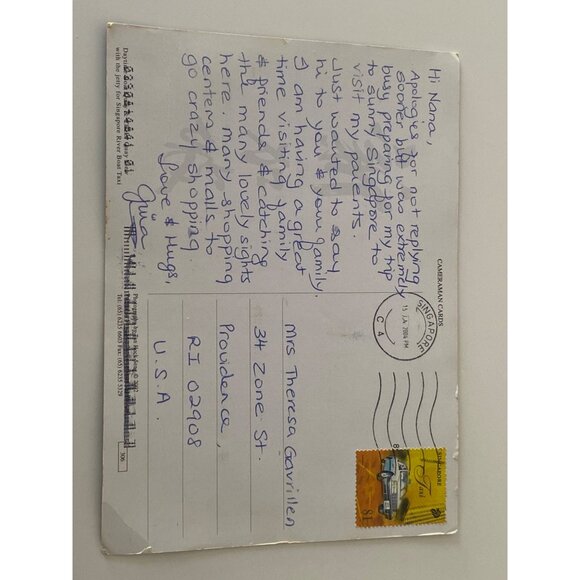 Hi Nana,
Apologies for not replying
sooner but was extremely
busy preparing for my trip
to sunny Singapore to
visit my parents.
Just wanted to say
hi to you & your family.
I am having a great
time visiting family
& friends & catching
the many lovely sights
here. Many shopping
centers & malls to
go crazy shopping.
Love & Hugs,
Gina
with the jetty for Singapore River Boat Taxi
CAMERAMAN CARDS
SINGAPORE
15 JA 2004 PM
C 4
SINGAPORE
Taxi
Mrs Theresa Gavrillen
34 Zone St.
Providence,
RI 02908
U.S.A.
Tel: (65) 6235 6603 Fax: (65) 6235 5329
306